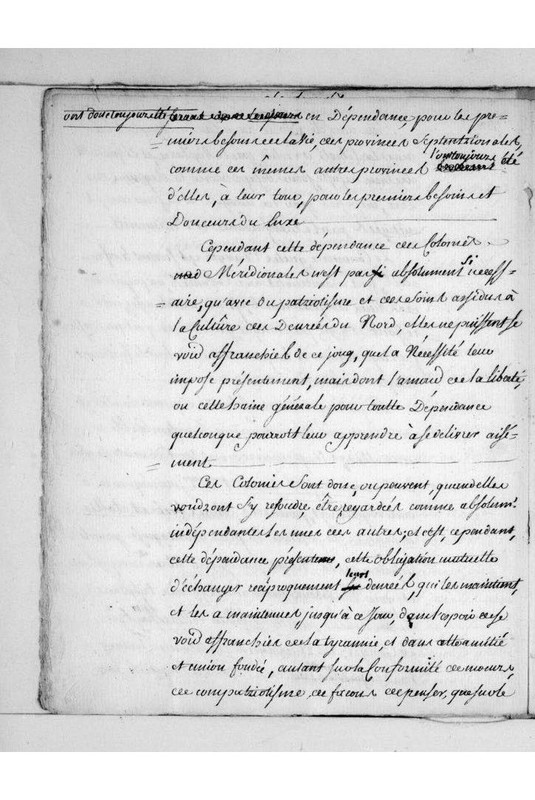 ont donc toujours été en Dépendance, pour les pre=
=miers besoins de la vie, des provinces Septentrionales,
comme ces mêmes autres provinces l'ont toujours été
d'elles, à leur tour, pour les premiers besoins et
Douceurs du Luxe
Cependant cette dépendance des Colonies
Méridionales n'est pas absolument si necess=
=aire, qu'avec du patriotisme et des soins assidus à
la Culture des Denrées du Nord, elles ne puissent se
voir affranchies de ce joug, que la Nécessité leur
impose présentement, mais dont l'amour de la liberté,
ou cette haine générale pour toutte Dépendance
quelconque pourroit leur apprendre à se delivrer aisé=
=ment
Ces Colonies sont donc, ou peuvent, quand elles
voudront s'y resoudre, être regardées comme absolumt.
indépendantes les unes des autres; et c'est, cependant,
cette dépendance présente, cette obligation mutuelle
d'échanger réciproquement leurs denrées, qui les maintient,
et les a maintenues jusqu'à ce Jour, dans l'espoir de se
voir affranchies de la tyrannie, et dans cette amitié
et union fondée, autant sur la Conformité de moeurs,
de compatriotisme, de façons de penser, que sur le